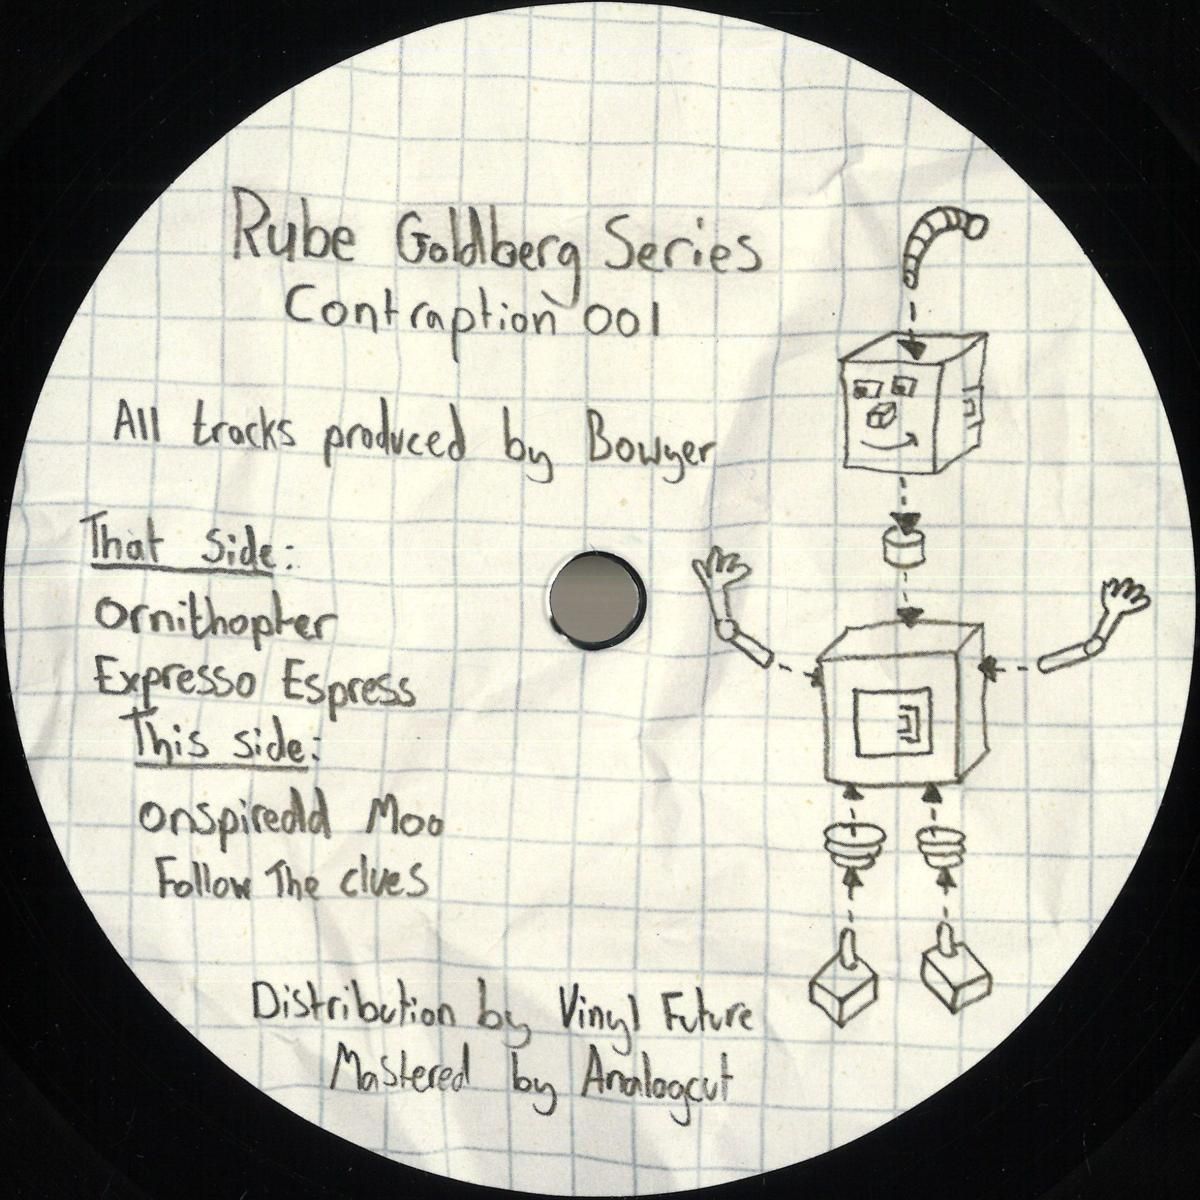 Rube Goldberg Series
Contraption 001
All tracks produced by Bowyer
That side:
Ornithopter
Expresso Espress
This side:
onspiredd Moo
Follow The clues
Distribution by Vinyl Future
Mastered by Analogcut